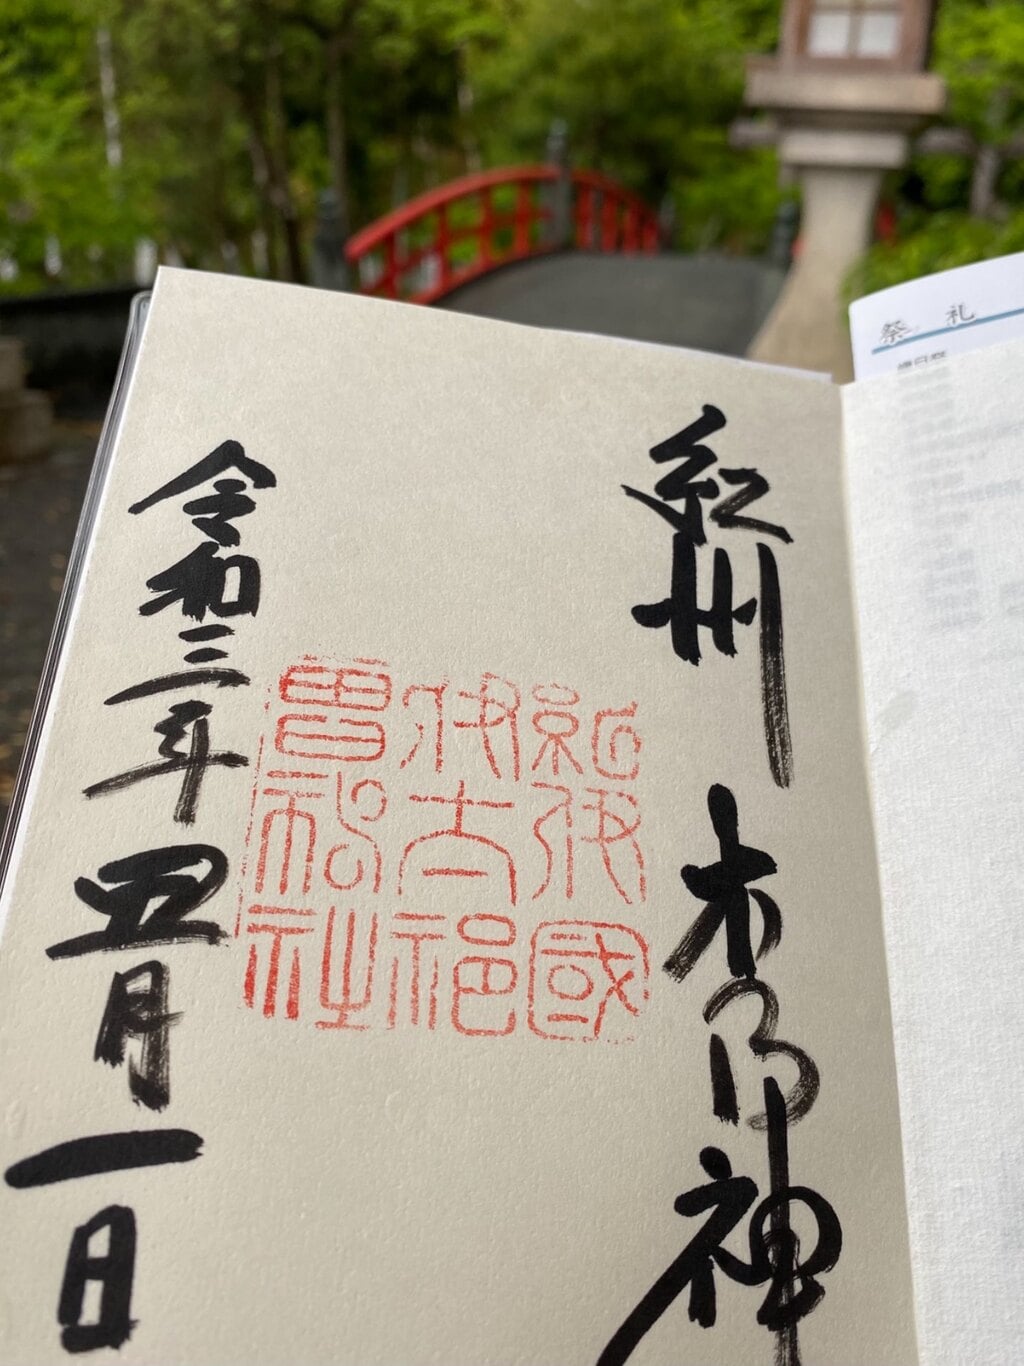 祭 礼
紀州 木乃神
紀伊國
伊太祁
曾神社
令和三年 五月一日